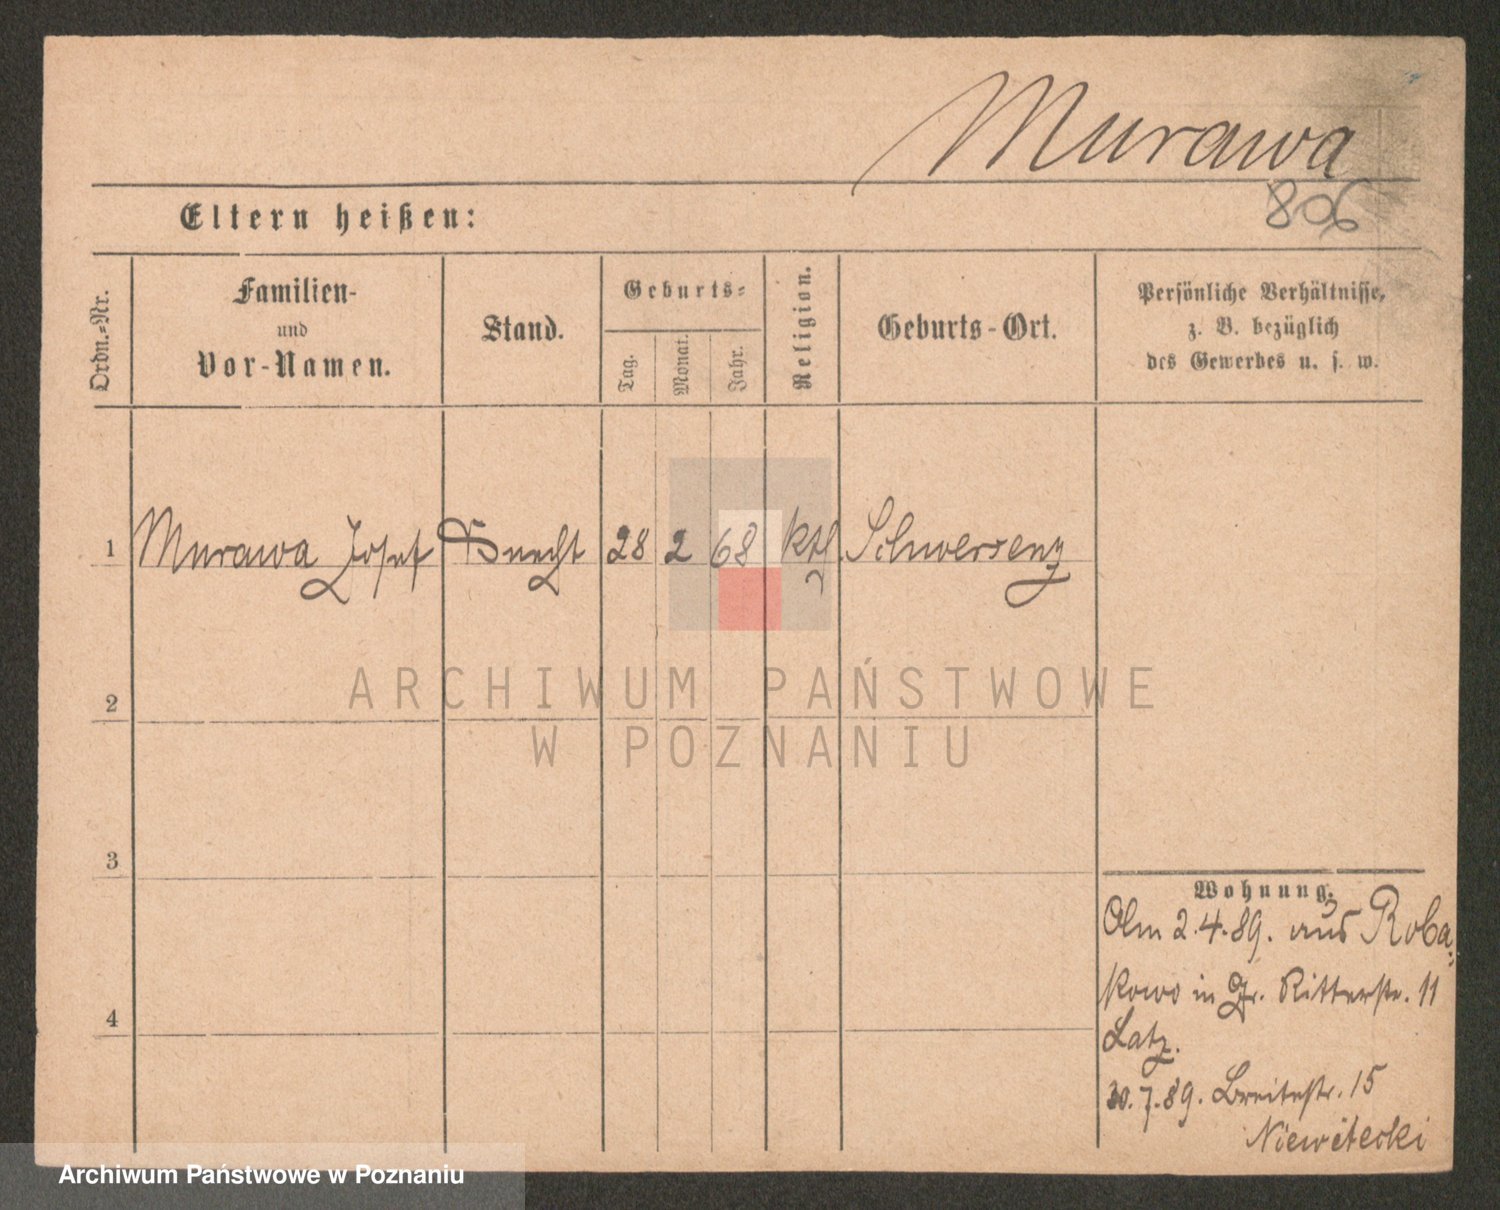 Murawa
806
Eltern heißen:
Ordn.-Nr.
Familien-
und
Vor-Namen.
Stand.
Geburts-
Tag.
Monat.
Jahr.
Religion.
Geburts-Ort.
Persönliche Verhältnisse,
z. B. bezüglich
des Gewerbes u. s. w.
1 Murawa Josef Knecht 28 2 68 ktl. Schwersenz
2
3
4
Wohnung.
2.4.89. aus Roba-
kowo in Gr. Ritterstr. 11
Latz.
30.7.89. Breitestr. 15
Niewitecki
ARCHIWUM PAŃSTWOWE
W POZNANIU
Archiwum Państwowe w Poznaniu